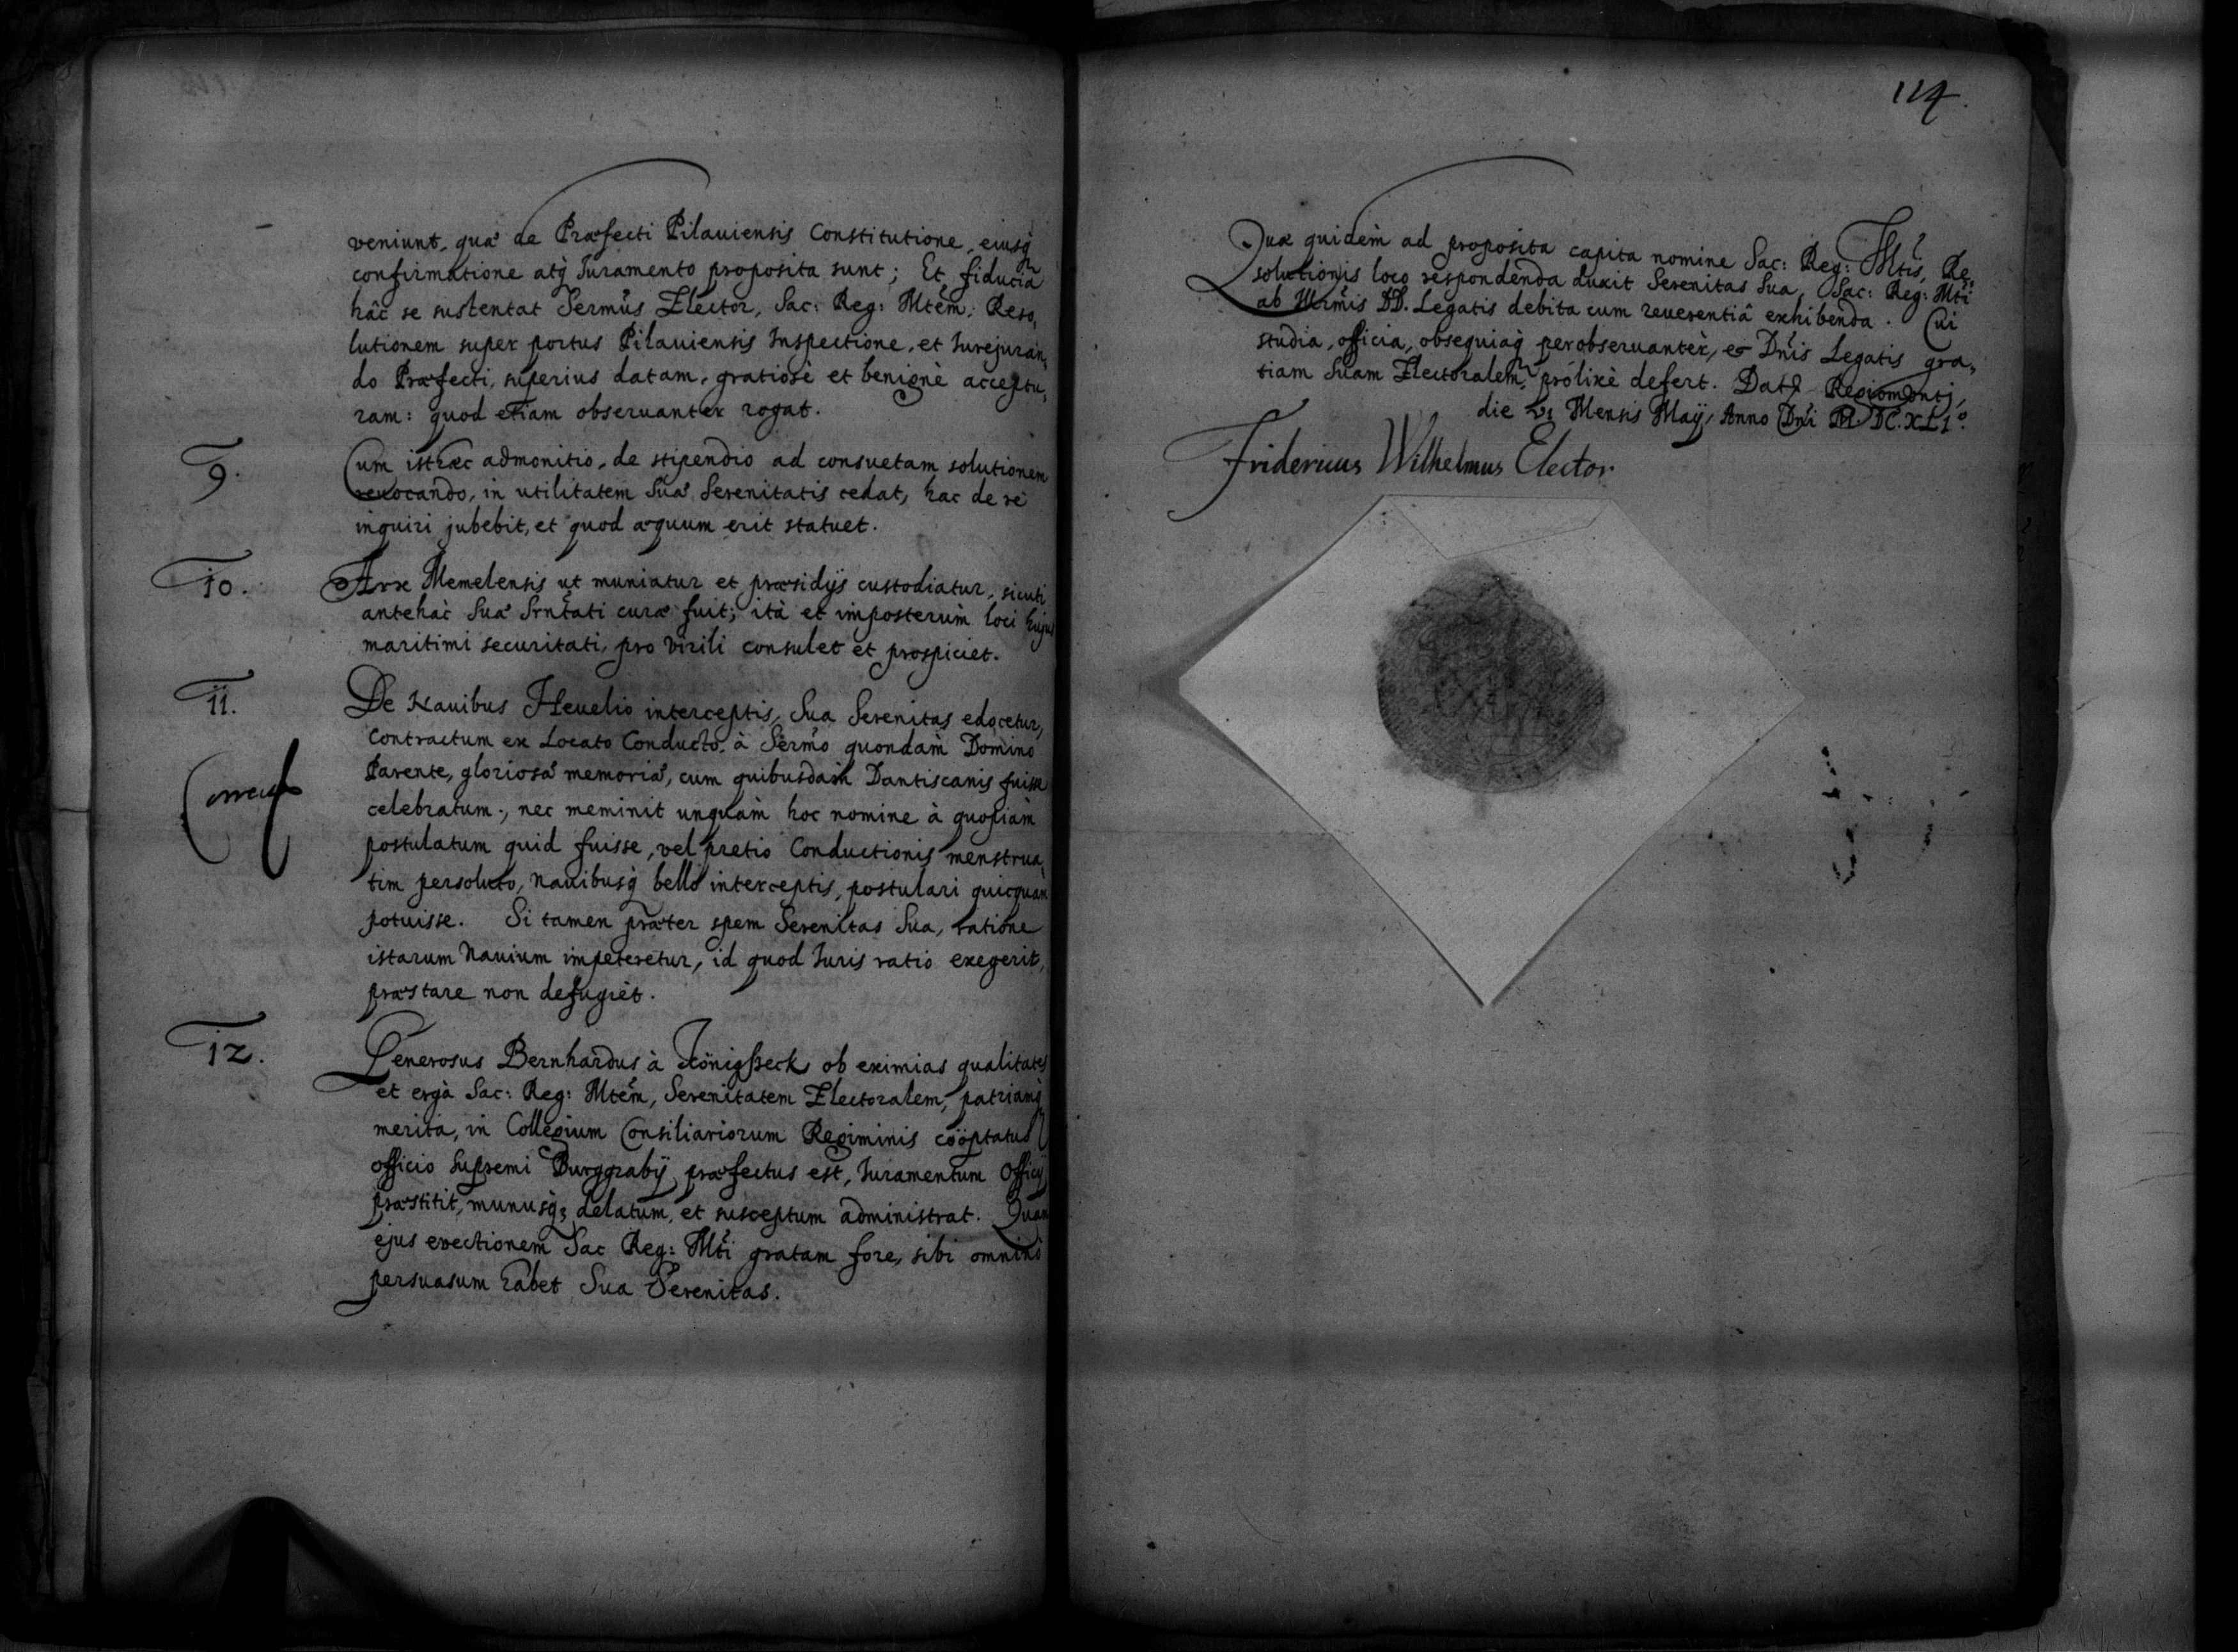 veniunt, quæ de Præfecti Pilauiensis Constitutione, eiusq́
confirmatione atq́ Juramento proposita sunt; Et fiducia
hâc se sustentat Sermus Elector, Sac: Reg: Mtem, Reso,
lutionem super portus Pilauiensis Inspectione, et Jurejuran,
do Præfecti, superius datam, gratiosè et benignè acceptu,
ram: quod etiam observanter rogat.
9. Cum istæc admonitio, de stipendio ad consuetam solutionem
revocando, in utilitatem Suæ Serenitatis cedat, hac de re
inquiri jubebit, et quod æquum erit statuet.
10. Arx Memelensis ut muniatur et præsidijs custodiatur, sicuti
antehàc Suæ Srntati curæ fuit; ità et imposterùm loci hujus
maritimi securitati, pro virili consulet et prospiciet.
11. De Navibus Hevelio interceptis, Sua Serenitas edocetur,
Contractum ex Locato Conducto, à Sermo quondam Domino
Parente, gloriosæ memoriæ, cum quibusdam Dantiscanis fuisse
celebratum, nec meminit unquàm hoc nomine à quopiàm
postulatum quid fuisse, vel pretio Conductionis menstrua,
tim persoluto, Navibusq́ bello interceptis, postulari quicquam
potuisse. Si tamen præter spem Serenitas Sua, ratione
istarum Navium impeteretur, id quod Juris ratio exegerit,
præstare non defugiet.
12. Generosus Bernhardus à Königßeck ob eximias qualitates
et ergà Sac: Reg: Mtem, Serenitatem Electoralem, patriamq́
merita, in Collegium Consiliariorum Regiminis cooptatus
officio Supremi Burggrabij præfectus est, Juramentum Officij
præstitit, munusq́; delatum, et susceptum administrat. Quam
ejus evectionem Sac Reg: Mti gratam fore, sibi omninò
persuasum habet Sua Serenitas.
114.
Quæ quidem ad proposita capita nomine Sac: Reg: Mtis, Re,
solutionis loco respondenda duxit Serenitas Sua, Sac: Reg: Mti
ab Illrmis DD. Legatis debita cum reverentiâ exhibenda. Cui
studia, officia, obsequiaq́ perobservanter, et Dnis Legatis gra,
tiam Suam Electoralem, prolixè defert. Dat Regiomontj,
die Mensis Maij, Anno Dni M. DC. XLIo.
Fridericus Wilhelmus Elector